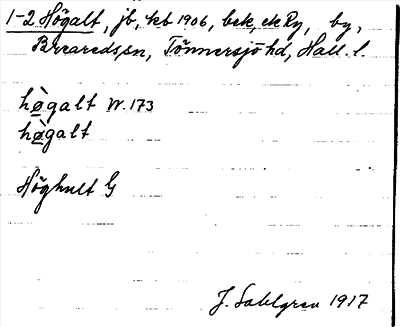 1-2 Högalt, jb, kb 1906, bek, ek Ry, by,
Breareds sn, Tönnersjö hd, Hall. l.
hø̀galt W. 173
hø̀galt
Höghult G
J. Sahlgren 1917